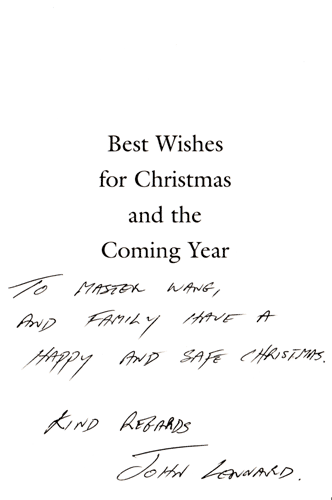 Best Wishes
for Christmas
and the
Coming Year
To MASTER WANG,
AND FAMILY HAVE A
HAPPY AND SAFE CHRISTMAS.
KIND REGARDS
JOHN LENNARD.